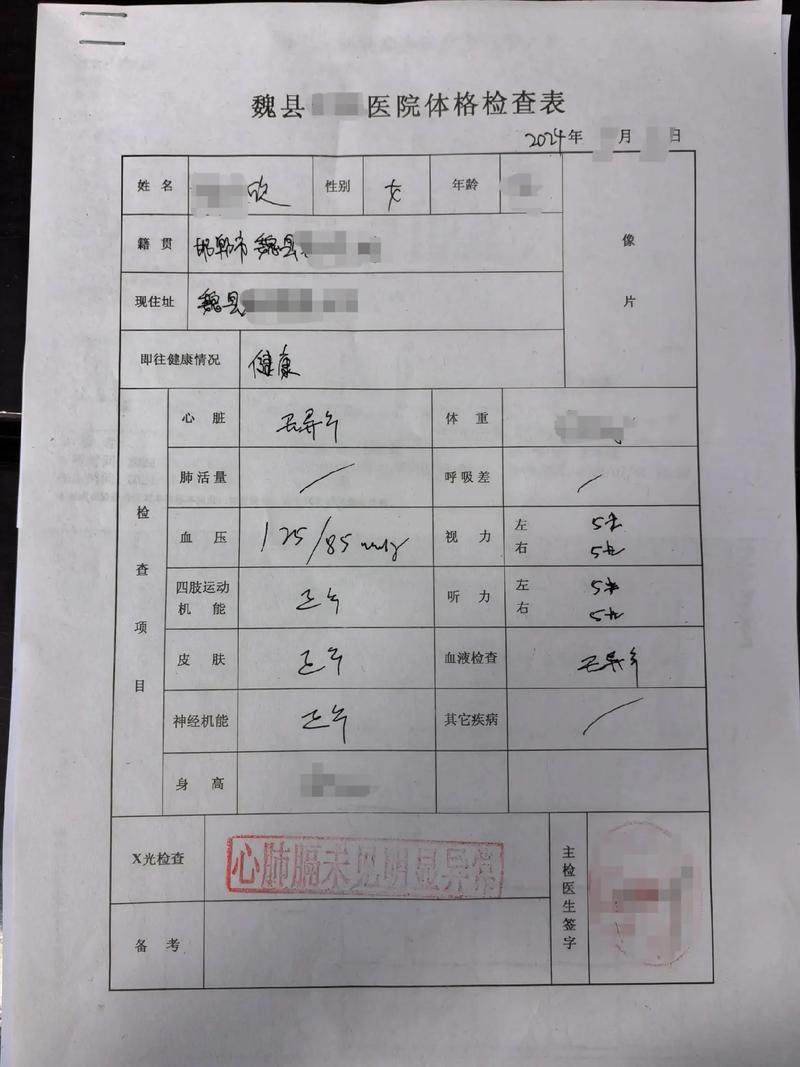 魏县 医院体格检查表
2024年 月 日
姓 名 欣 性别 女 年龄
像
片
籍 贯 邯郸市魏县
现住址 魏县
即往健康情况 健康
检查项目
心 脏 无异常 体 重
肺活量 / 呼吸差 /
血 压 125/85 mmHg 视 力 左
右
四肢运动
机 能 正常 听 力 左
右
皮 肤 正常 血液检查 无异常
神经机能 正常 其它疾病 /
身 高
X光检查 心肺膈未见明显异常
主检医生签字
备 考